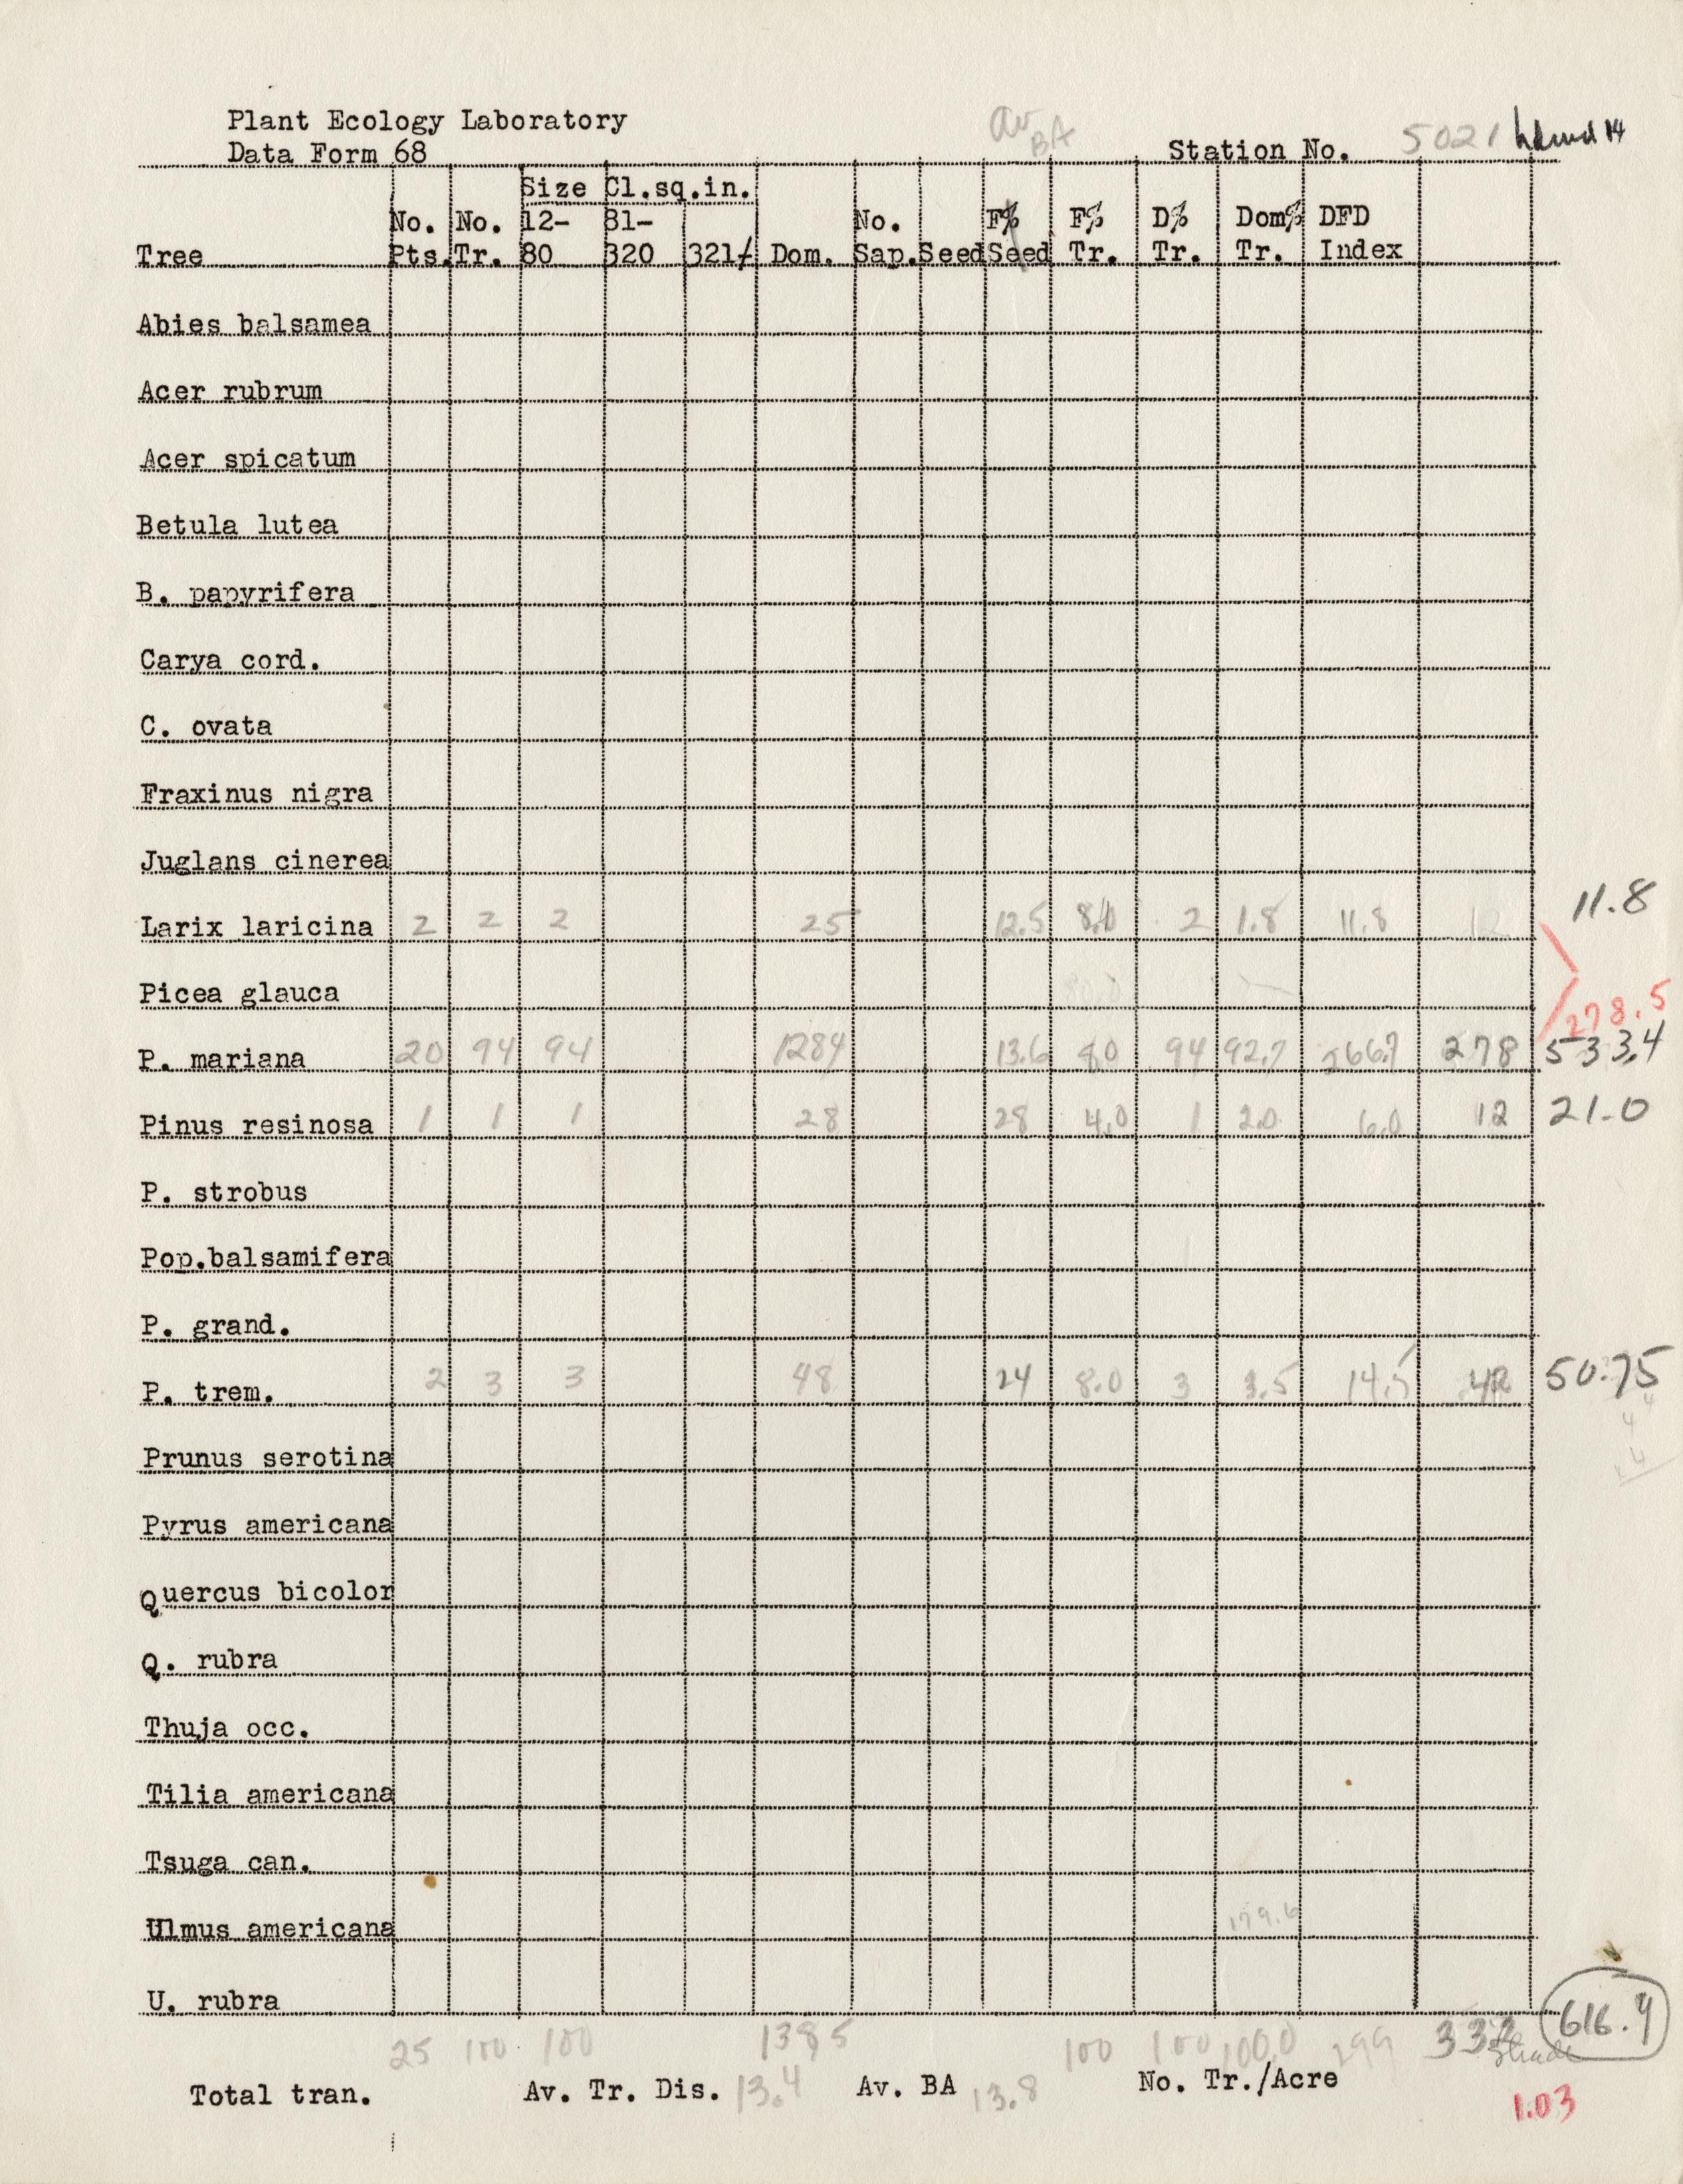 Plant Ecology Laboratory
Data Form 68
av
BA
Station No. 5021
Size Cl.sq.in.
No. No. 12- 81- No. F% F% D% Dom% DFD
Tree Pts. Tr. 80 320 321/ Dom. Sap. Seed Seed Tr. Tr. Tr. Index
Abies balsamea
Acer rubrum
Acer spicatum
Betula lutea
B. papyrifera
Carya cord.
C. ovata
Fraxinus nigra
Juglans cinerea
Larix laricina 2 2 2 25 12.5 8.0 2 1.8 11.8 12 11.8
Picea glauca 80.0
278.5
P. mariana 20 94 94 1284 13.6 80 94 92.7 266.7 278 533.4
Pinus resinosa 1 1 1 28 28 4.0 1 2.0 6.0 12 21.0
P. strobus
Pop.balsamifera
P. grand.
P. trem. 2 3 3 48 24 8.0 3 3.5 14.5 42 50.75
4
4
Prunus serotina
Pyrus americana
Quercus bicolor
Q. rubra
Thuja occ.
Tilia americana
Tsuga can.
Ulmus americana 179.6
U. rubra
616.9
25 100 100 1385 100 100 100.0 299 332
Total tran. Av. Tr. Dis. 13.4 Av. BA 13.8 No. Tr./Acre
1.03